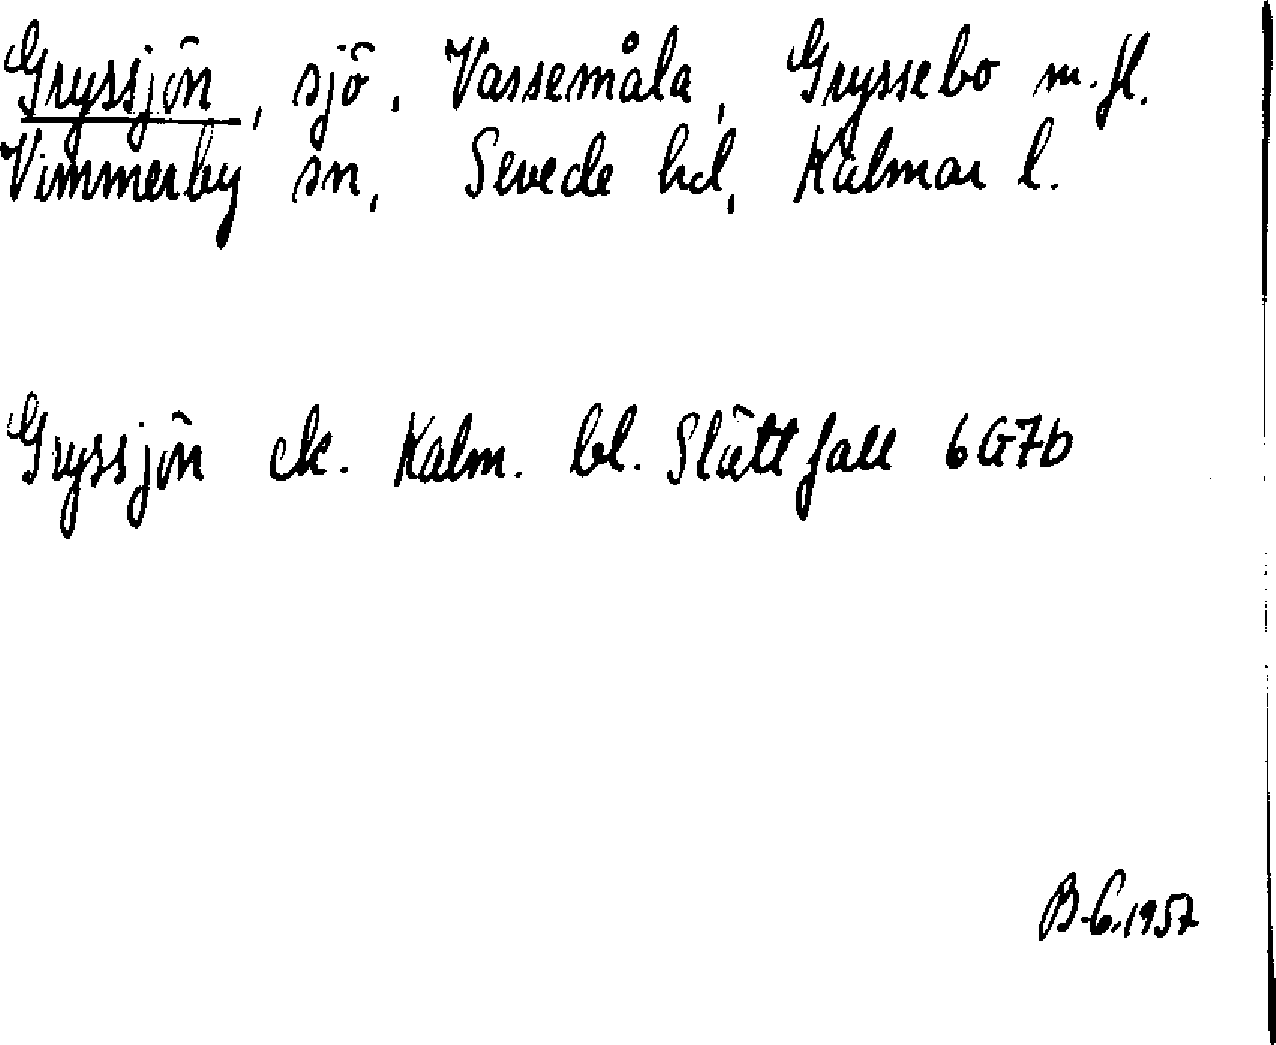 Gryssjön, sjö, Vassemåla, Gryssebo m.fl.
Vimmerby sn, Sevede hd, Kalmar l.
Gryssjön ek. Kalm. bl. Slättfall 6G7b
B.G.1957